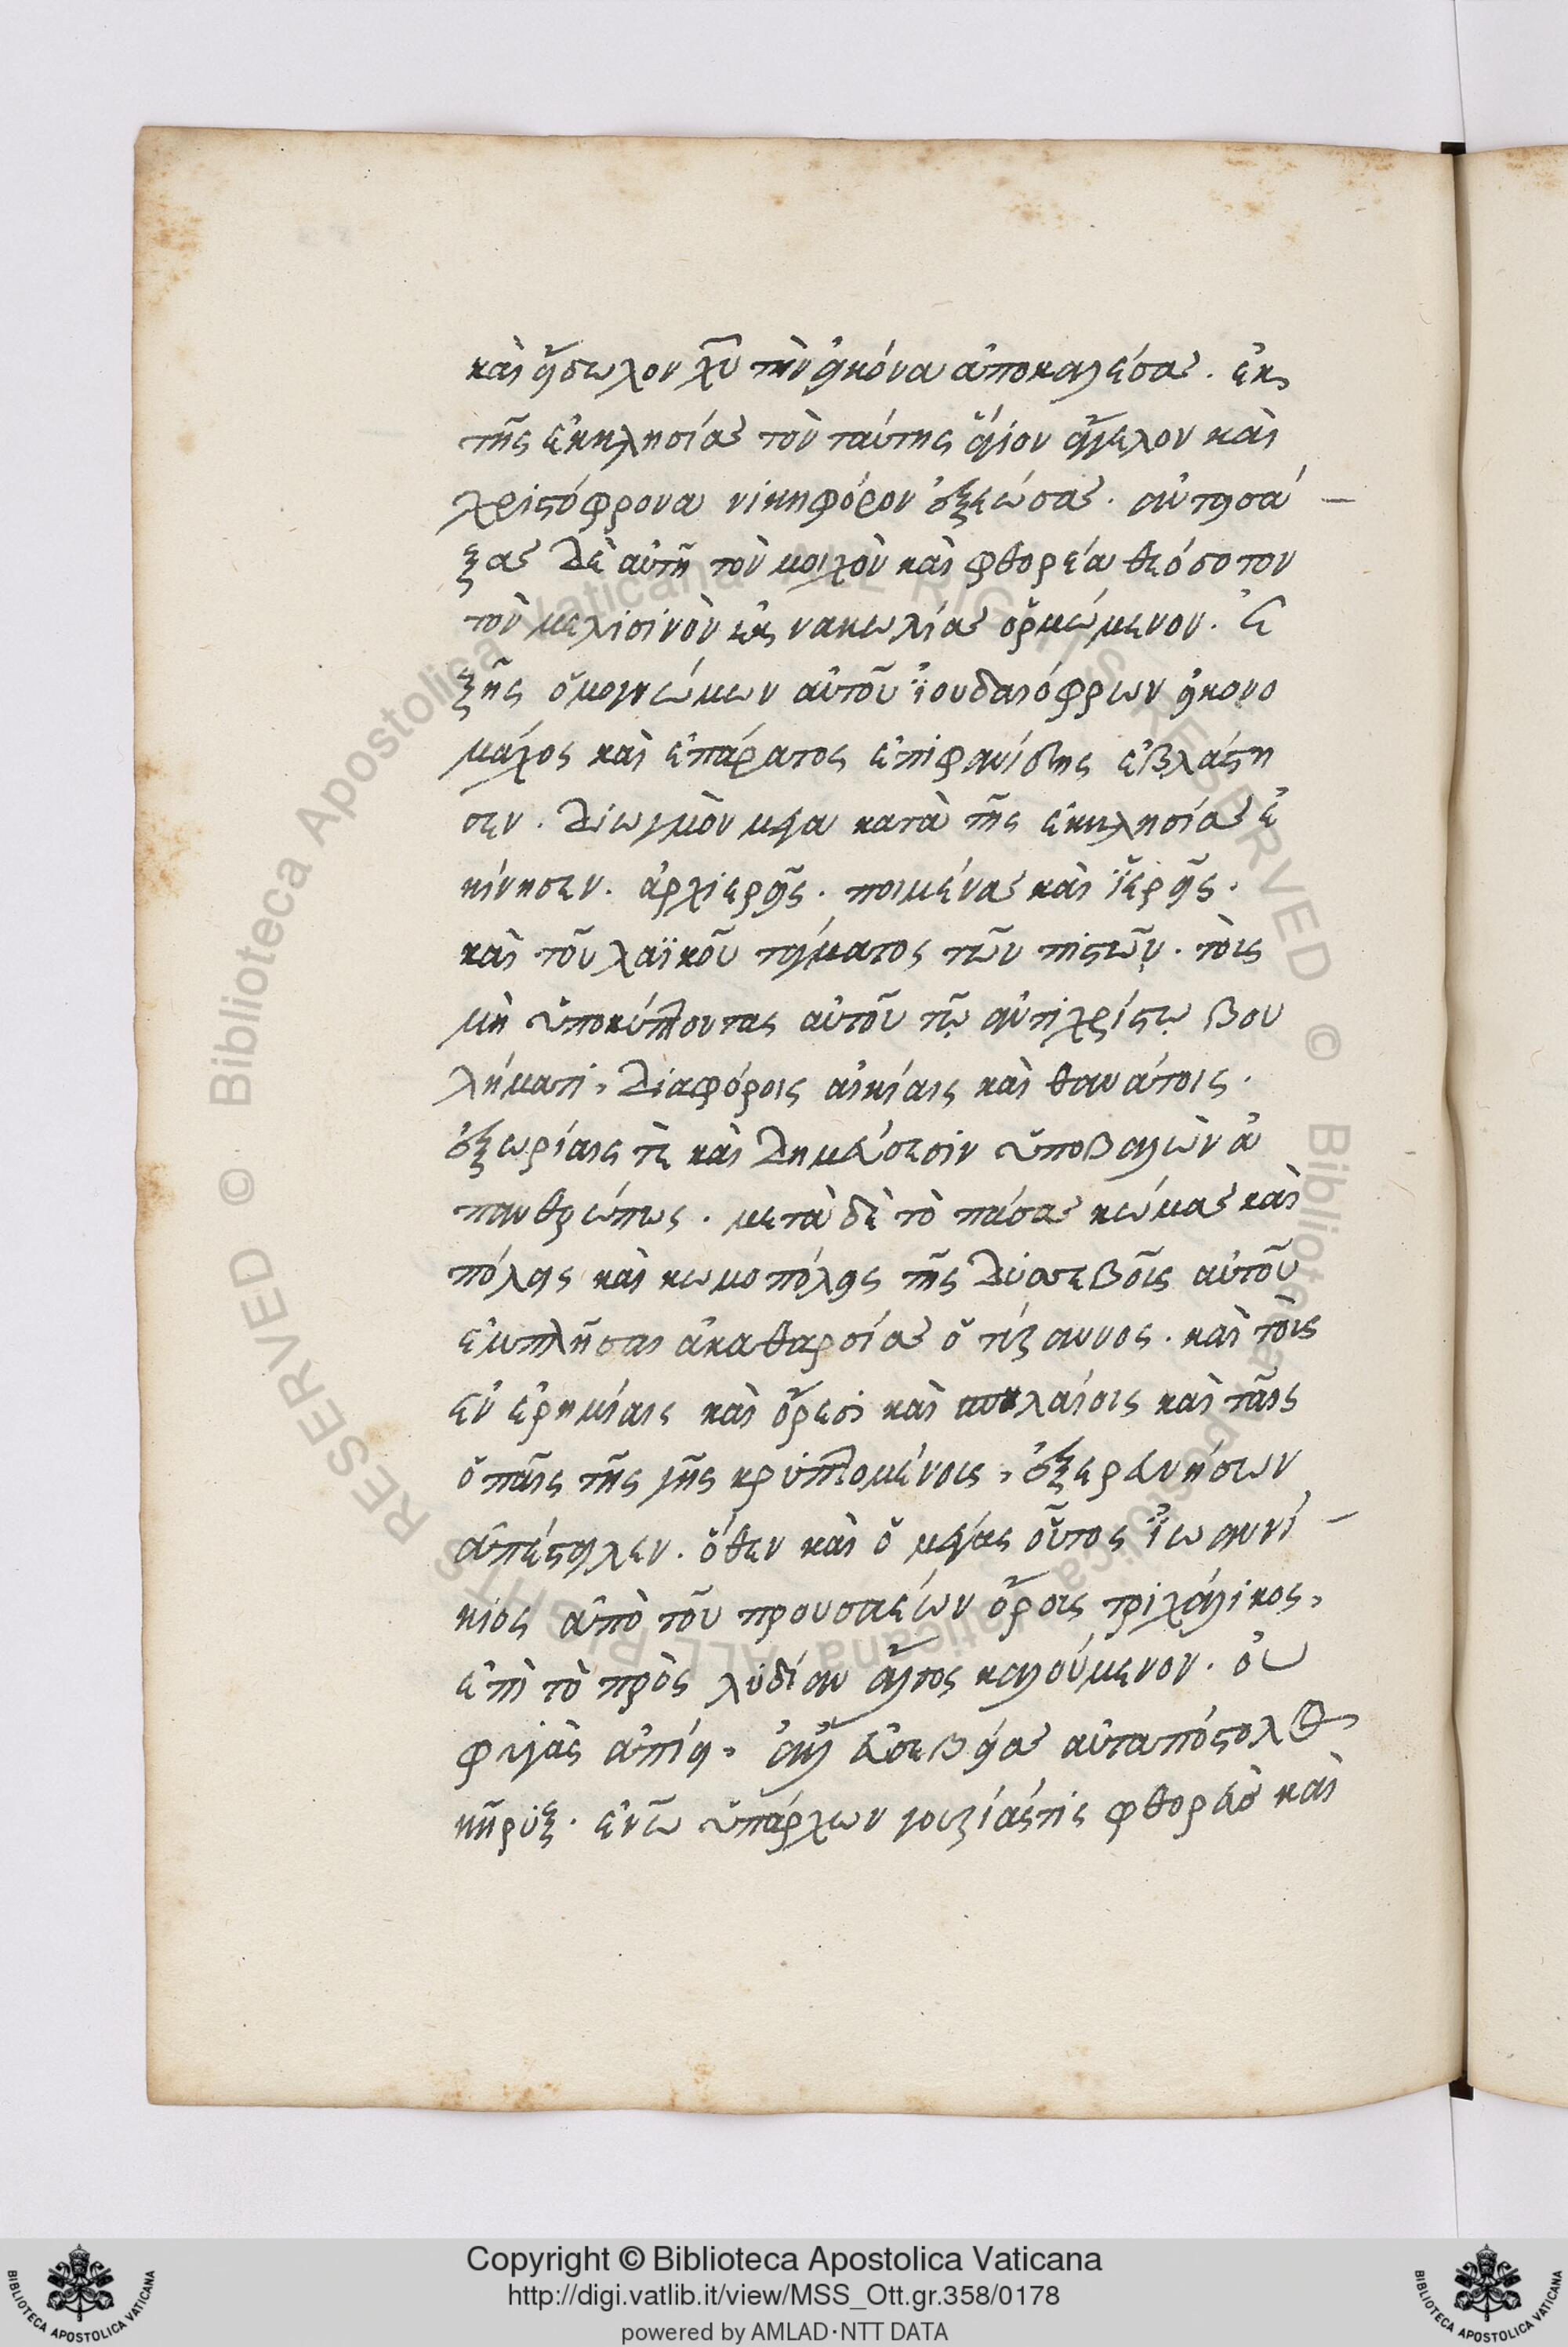 καὶ εἴδωλον χ̅υ̅ τὴν εἰκόνα ἀποκαλέσας. ἐκ
τῆς ἐκκλησίας τὸν ταύτης ἅγιον ἄγγελον καὶ
χριστόφρονα νικηφόρον ἐξεώσας. ἀντεισά-
ξας δὲ αὐτῇ τὸν μοιχὸν καὶ φθορέα θεόδοτον
τὸν μελισινὸν ἐκ νακωλίας ὁρμώμενον. ἐ
ξῆς ὁμογνώμων αὐτοῦ ἰουδαιόφρων εἰκονο
μάχος καὶ ἐπάρατος ἐπιφανίδης ἐβλάστη
σεν. διωγμὸν μέγα κατὰ τῆς ἐκκλησίας ἐ
κίνησεν. ἀρχιερεῖς. ποιμένας καὶ ἱερεῖς.
καὶ τοῦ λαϊκοῦ τάγματος τῶν πιστῶν. τοὺς
μὴ ὑποκύπτοντας αὐτοῦ τῷ ἀντιχρίστῳ βου
λήματι, διαφόροις αἰκίαις καὶ θανάτοις.
ἐξωρίαις τὲ καὶ δημεύσεσιν ὑποβαλὼν ἀ
πανθρώπως. μετὰ δὲ τὸ πάσας κώμας καὶ
πόλεις καὶ κωμοπόλεις τῆς δυσσεβοῦς αὐτοῦ
ἐμπλῆσαι ἀκαθαρσίας ὁ τύραννος. καὶ τοὺς
ἐν ἐρημίαις καὶ ὄρεσι καὶ σπηλαίοις καὶ ταῖς
ὀπαῖς τῆς γῆς κρυπτομένους, ἐξερευνήσων
ἀπέστειλεν. ὅθεν καὶ ὁ μέγας οὗτος ἰωαννί-
κιος ἀπὸ τοῦ προυσαέων ὄρους τριχάλικος,
ἐπὶ τὸ πρὸς λυδίαν ἄλσος καλούμενον. οὗ
φυγὰς ἀπίει, ἐκεῖ εὐσεβείας αὐταπόστολος
κῆρυξ. ἐν ᾧ ὑπάρχων γουρίας τίς φθορεὺς καὶ